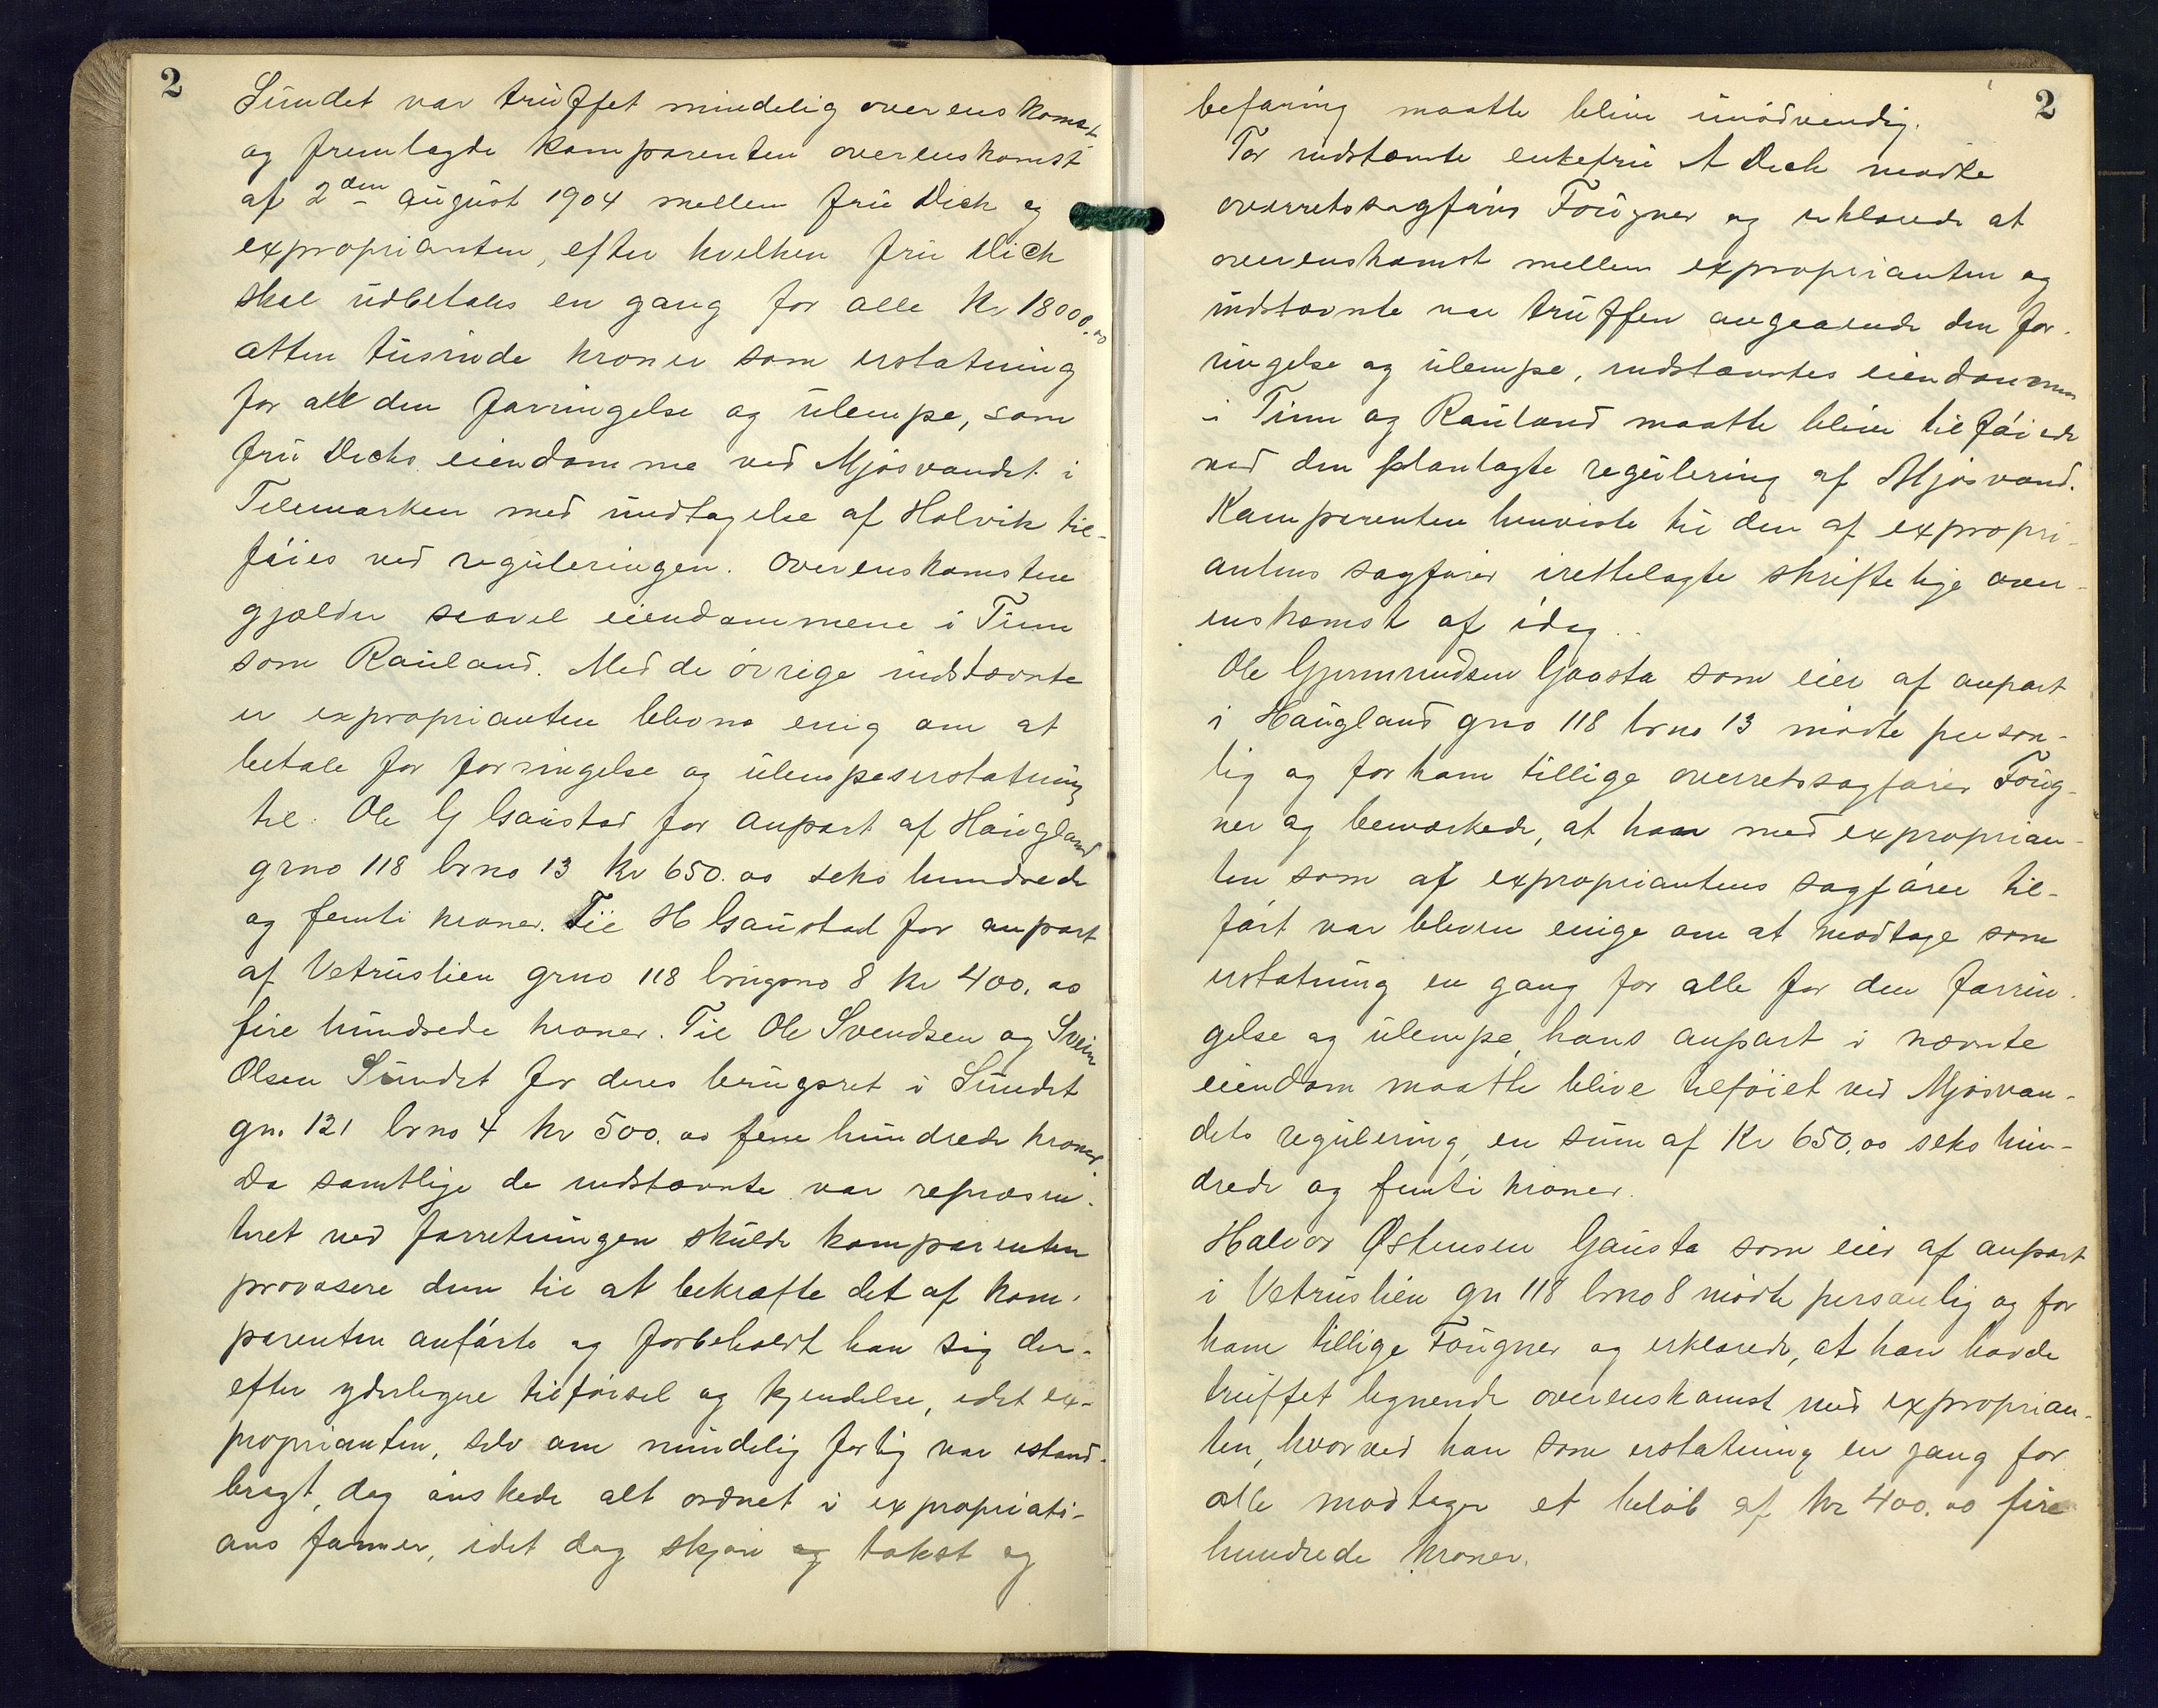 2
Sundet var truffet mindelig overenskomst
og fremlagde komparenten overenskomst
af 2den august 1904 mellem fru Dick og
exproprianten, efter hvilken fru Dick
skal udbetales en gang for alle Kr 18000.00
atten tusinde kroner som erstatning
for all den forringelse og ulempe, som
fru Dicks eiendomme ved Mjøsvandet i
Telemarken med undtagelse af Holvik til-
føies ved reguleringen. Overenskomsten
gjælder saavel eiendommene i Tinn
som Rauland. Med de øvrige indstævnte
er exproprianten blevne enig om at
betale for forringelse og ulempeserstatning
til: Ole G Gaustad for anpart af Haugland
grno 118 brno 13 kr 650.00 seks hundrede
og femti kroner. Til H Gaustad for anpart
af Vetruslien grno 118 brugsno 8 kr 400.00
fire hundrede kroner. Til Ole Svendsen og Svein
Olsen Sundet for deres brugsret i Sundet
gn. 121 brno 4 kr 500.00 fem hundrede kroner.
Da samtlige de indstævnte var repræsen-
teret ved forretningen skulde komparenten
provosere dem til at bekræfte det af kom-
parenten anførte og forbeholdt han sig der-
efter yderligere tilførsel og kjendelse, idet ex-
proprianten, selv om mindelig forlig var istand-
bragt, dog ønskede alt ordnet i expropriati-
ons former, idet dog skjøn og takst og
2
befaring maatte blive unødvendig.
For indstævnte enkefru A Dick mødte
overretssagfører Fougner og erklærede at
overenskomst mellem exproprianten og
indstævnte var truffen angaaende den for-
ringelse og ulempe, indstævntes eiendomme
i Tinn og Rauland maatte blive tilføiede
ved den planlagte regulering af Mjøsvand.
Komparenten henviste til den af expropri-
antens sagfører irettelagte skriftelige over-
enskomst af idag.
Ole Gjermundsen Gaasta som eier af anpart
i Haugland gno 118 brno 13 mødte person-
lig og for ham tillige overretssagfører Foug-
ner og bemærkede, at han med exproprian-
ten som af expropriantens sagfører til-
ført var bleven enige om at modtage som
erstatning en gang for alle for den forrin-
gelse og ulempe, hans anpart i nævnte
eiendom maatte blive tilføiet ved Mjøsvan-
dets regulering, en sum af Kr 650.00 seks hun-
drede og femti kroner.
Halvor Østensen Gausta som eier af anpart
i Vetruslien gn 118 brno 8 mødte personlig og for
ham tillige Fougner og erklærede, at han havde
truffet lignende overenskomst med exproprian-
ten, hvorved han som erstatning en gang for
alle modtager et beløb af kr 400.00 fire
hundrede kroner.